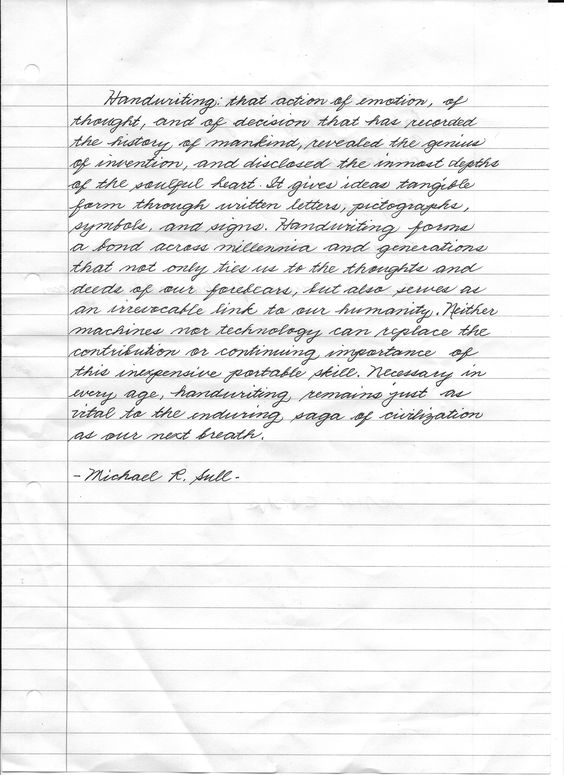 Handwriting: that action of emotion, of
thought, and of decision that has recorded
the history of mankind, revealed the genius
of invention, and disclosed the inmost depths
of the soulful heart. It gives ideas tangible
form through written letters, pictographs,
symbols, and signs. Handwriting forms
a bond across millennia and generations
that not only ties us to the thoughts and
deeds of our forebears, but also serves as
an irrevocable link to our humanity. Neither
machines nor technology can replace the
contribution or continuing importance of
this inexpensive portable skill. Necessary in
every age, handwriting remains just as
vital to the enduring saga of civilization
as our next breath.
- Michael R. Sull -